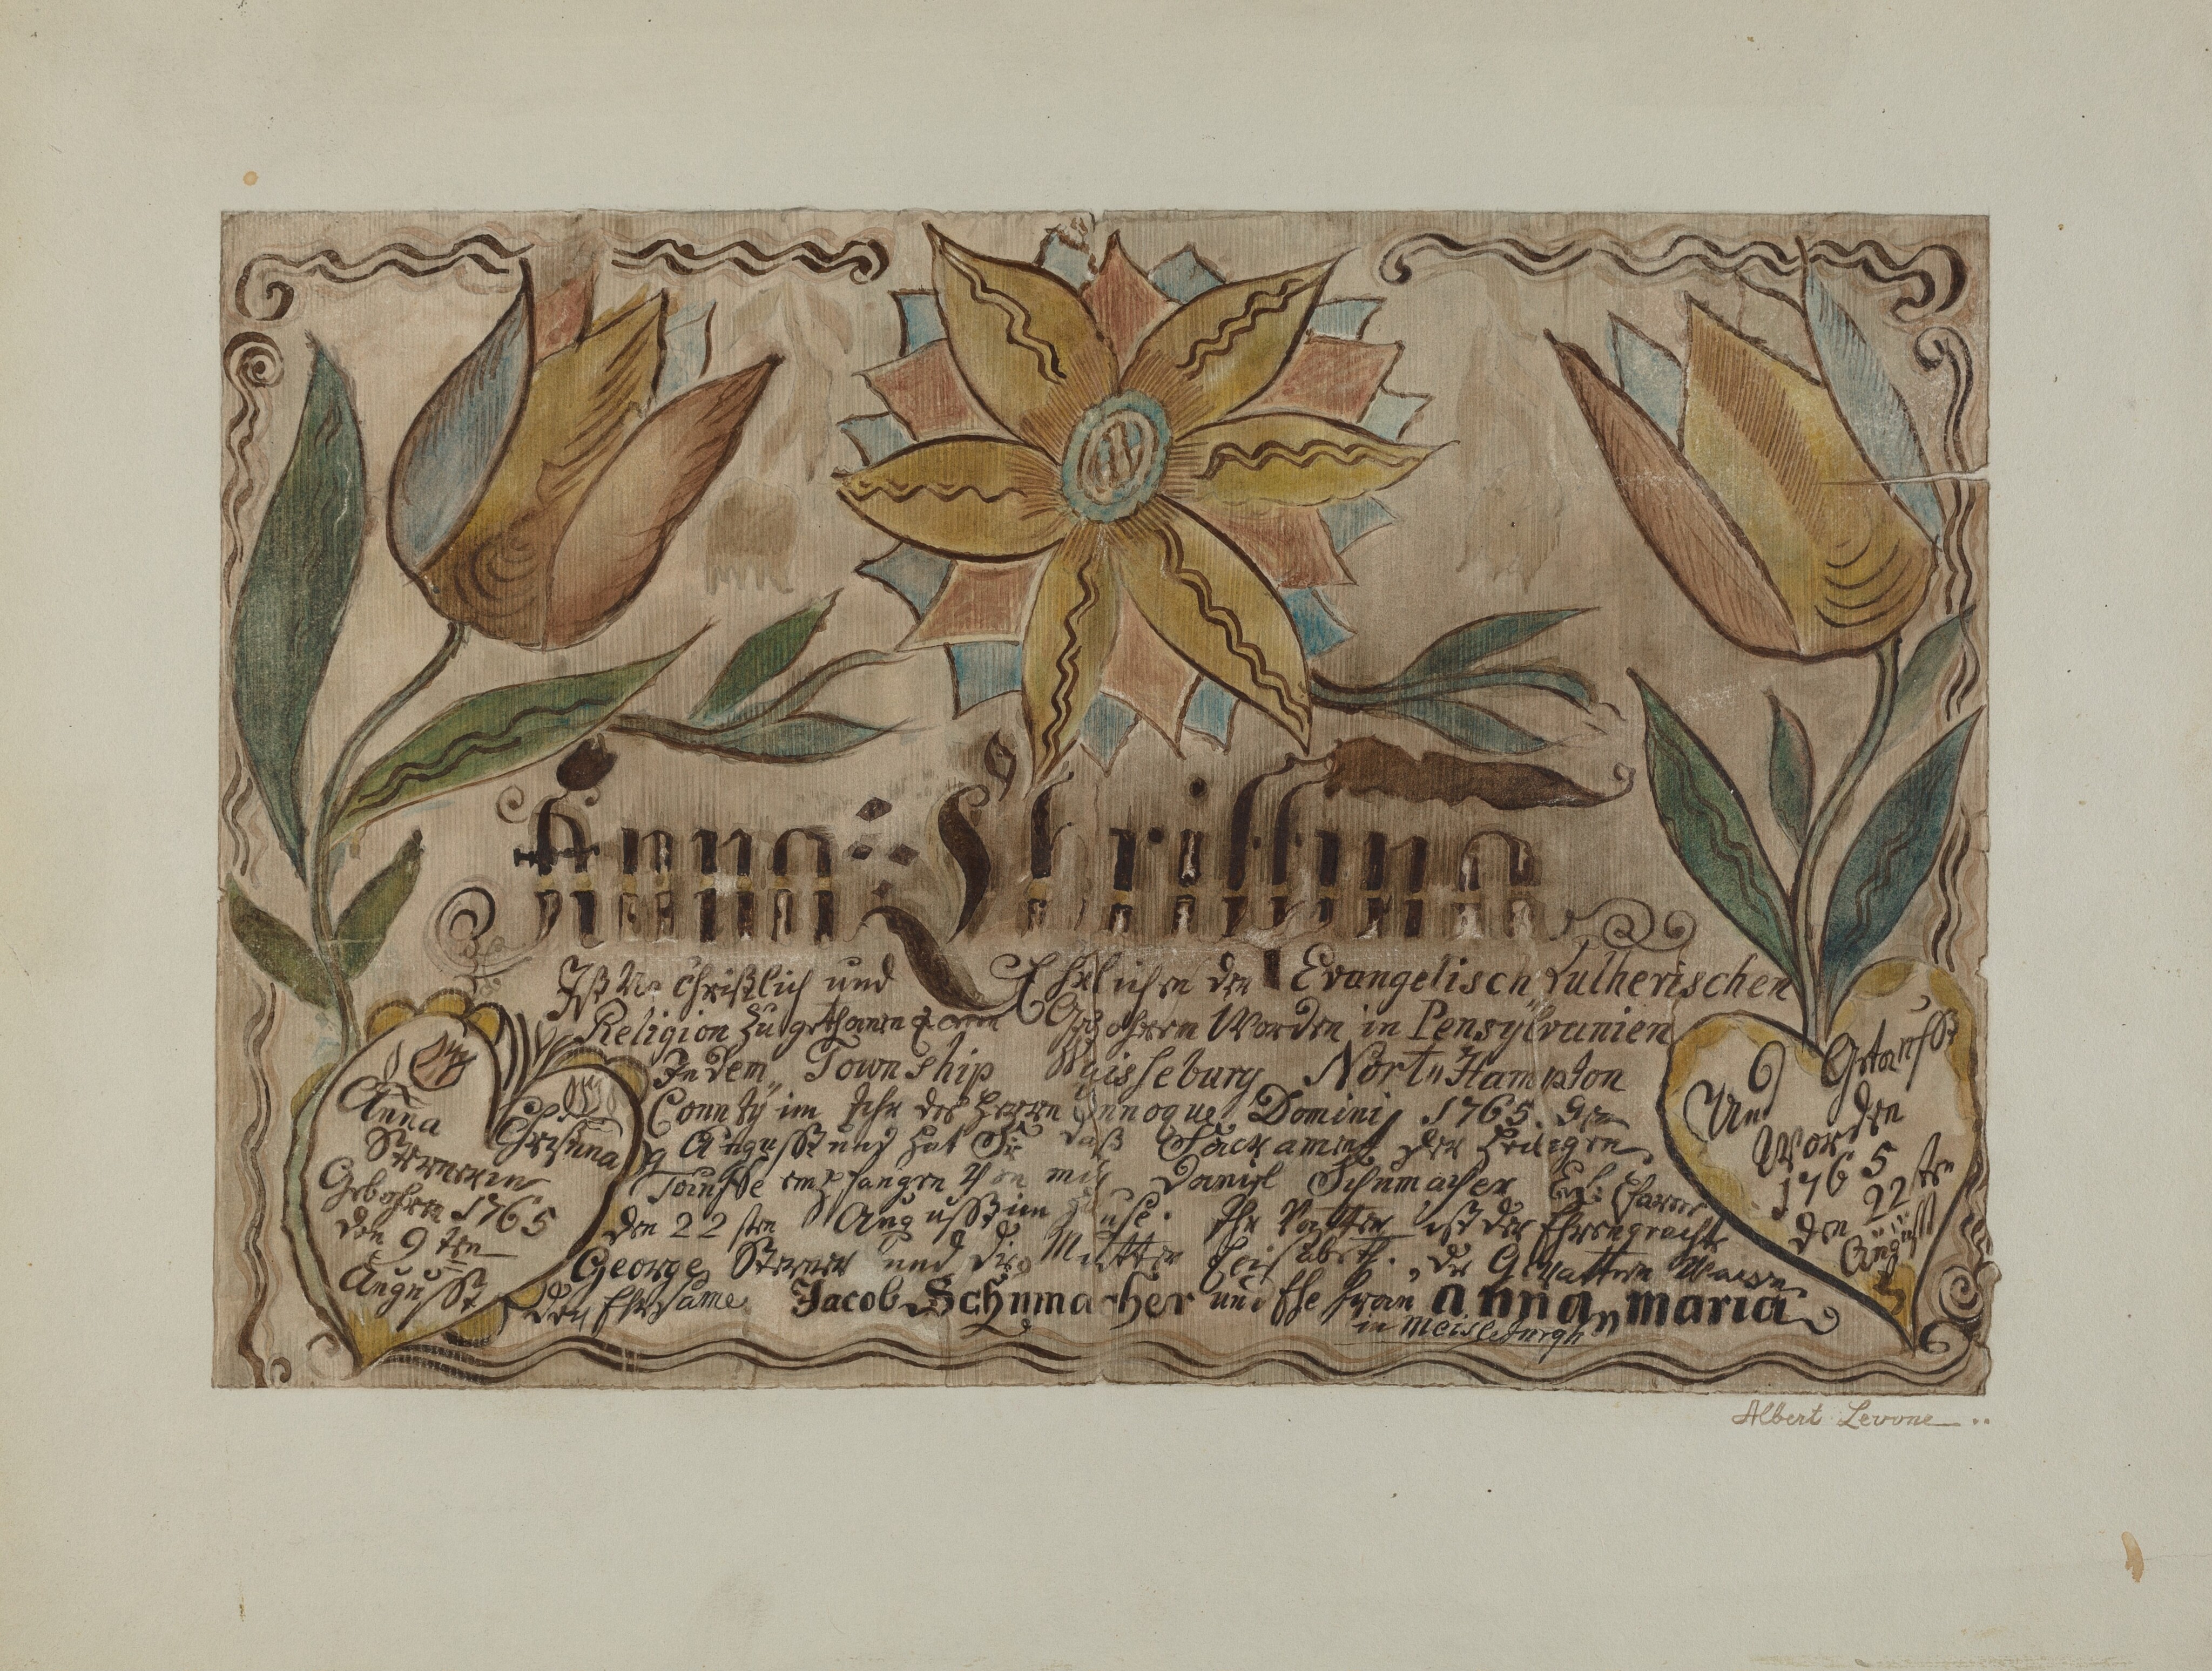 Anna Christina
Ist Christlich und Ehelich der Evangelisch Lutherischen
Religion Zu gethanen Gebohren Worden in Pensylvanien
In dem Township Waisseburg North Hampton
County im Jahr des Herrn Annoque Domini 1765. den
9 Augusst und hat Sie daß Sackament der Heiligen
Tauffe empfangen Von mir Daniel Schumacher
den 22 sten Augusst im Hause. Ihr Vatter ist der
George Sterner und die Mutter Elisabeth. die Gevattern Waren
der Ehrsame Jacob Schumacher und Ehe frau anna maria
in Weissburgh
Anna Christina
Sternerin
Gebohren 1765
den 9 ten
Augusst
Und Getaufft
Worden
1765
den 22 sten
Augusst
Albert Levone